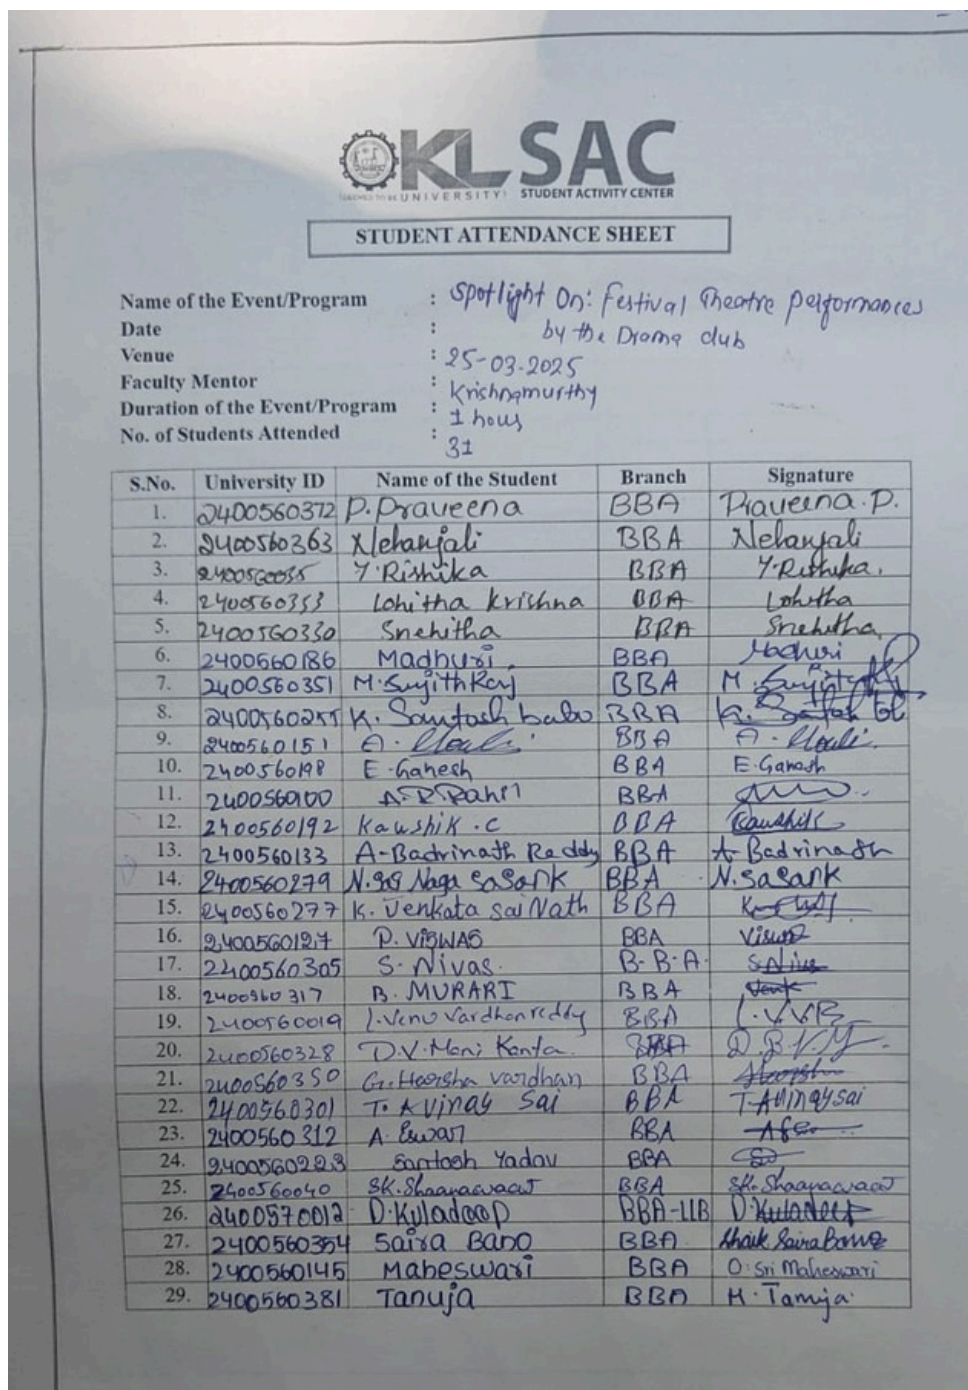 KL SAC
UNIVERSITY STUDENT ACTIVITY CENTER
STUDENT ATTENDANCE SHEET
Name of the Event/Program : Spotlight On: Festival Theatre performances
by the Drama club
Date :
Venue : 25-03-2025
Faculty Mentor : Krishnamurthy
Duration of the Event/Program : 1 hour
No. of Students Attended : 31
S.No. University ID Name of the Student Branch Signature
1. 2400560372 P. Praveena BBA Praveena. P.
2. 2400560363 Nehanjali BBA Nehanjali
3. 2400560035 Y. Rishika BBA Y. Rishika.
4. 2400560353 Lohitha Krishna BBA Lohitha
5. 2400560330 Snehitha BBA Snehitha
6. 2400560186 Madhuri. BBA Madhuri
7. 2400560351 M. Sujith Raj BBA M.
8. 2400560255 K. Santosh babu BBA K.
9. 2400560151 A. Mouli BBA A. Mouli
10. 2400560198 E. Ganesh BBA E. Ganesh
11. 2400560100 BBA
12. 2400560192 Kaushik. C BBA Kaushik
13. 2400560133 A-Badrinath Reddy BBA A-Badrinath
14. 2400560279 N. Sai Naga Sasank BBA N. Sasank
15. 2400560277 K. Venkata Sai Nath BBA
16. 2400560127 P. VISWAS BBA
17. 2400560305 S. Nivas. B-B-A.
18. 2400560317 B. MURARI BBA
19. 2400560019 Venu Vardhan reddy BBA
20. 2400560328 D.V. Mani Kanta. BBA
21. 2400560350 G. Harsha vardhan BBA
22. 2400560301 T. Avinay Sai BBA T. Avinay sai
23. 2400560312 A. Eswar BBA
24. 2400560223 Santosh Yadav BBA
25. 2400560040 SK. Shaanawaat BBA SK. Shaanawaat
26. 2400570012 D. Kuladeep BBA-LLB D. Kuladeep
27. 2400560354 Saira Bano BBA Shaik Saira Bano
28. 2400560145 Maheswari BBA O. Sri Maheswari
29. 2400560381 Tanuja BBA H. Tanuja.